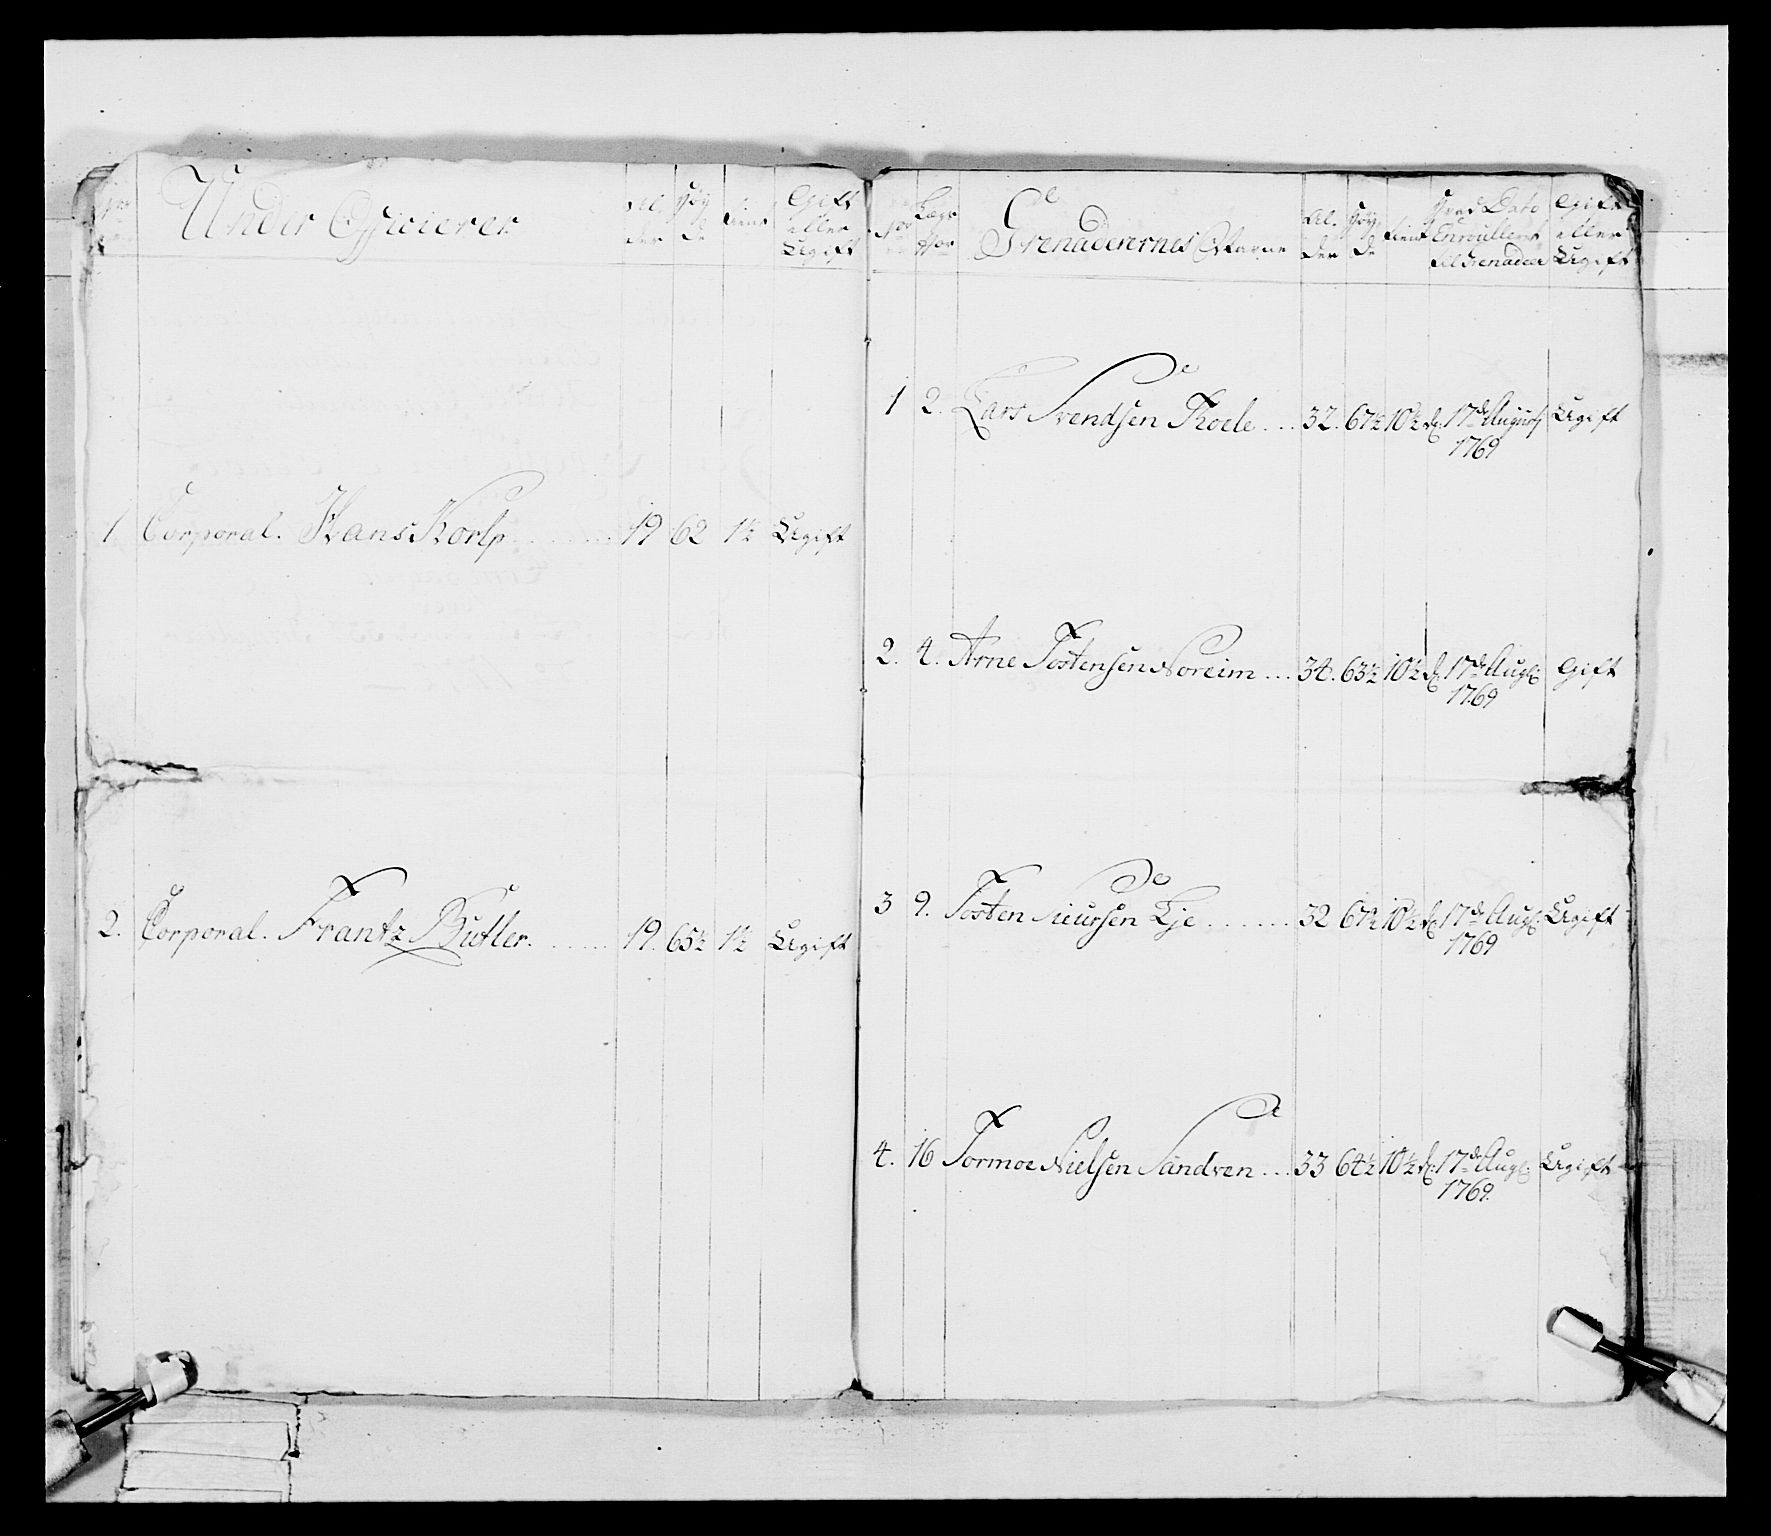 Under Officierer
Al
der
Høy
de
Tient
Gift
eller
Ugift
1 Corporal. Hans Korlp 19 62 1½ Ugift
2. Corporal. Frantz Butler. 19. 65½ 1½ Ugift
No
Lægs
No
Grenaderernes Navne
Al.
der
Høy
de
Tient
hvad Dato
Enroullert
til Grenader
Gift
eller
Ugift
1 2. Lars Svendsen Thoele 32. 67½ 10½ d: 17de August Ugift
1769
2. 4. Arne Tostensen Noreim 34. 63½ 10½ d: 17de Aug: Gift
1769
3 9. Tosten Sieursen Lje 32 67½ 10½ d: 17de Aug: Ugift
1769
4. 16 Tormoe Nielsen Sandven 33 64½ 10½ d: 17de Aug: Ugift
1769.